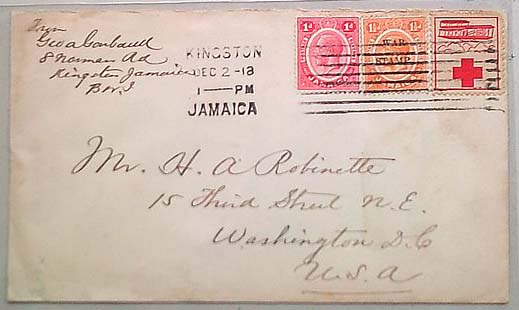 From
Geo a Gonbault
8 Norman Rd
Kingston Jamaica
B.W.I
KINGSTON
DEC 2-18
1—PM
JAMAICA
1d 1d
JAMAICA
1½ 1½
WAR
STAMP.
Mr. H. A Robinette
15 Third Street N.E.
Washington D.C
U.S.A